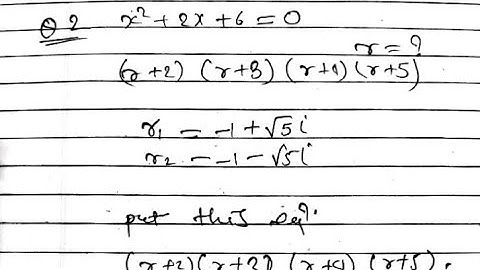 Q 2 x² + 2x + 6 = 0
r = ?
(r+2) (r+3) (r+4) (r+5)
r₁ = -1 + √5 i
r₂ = -1 - √5 i
put this eqⁿ.
(r+2)(r+3) (r+4) (r+5).